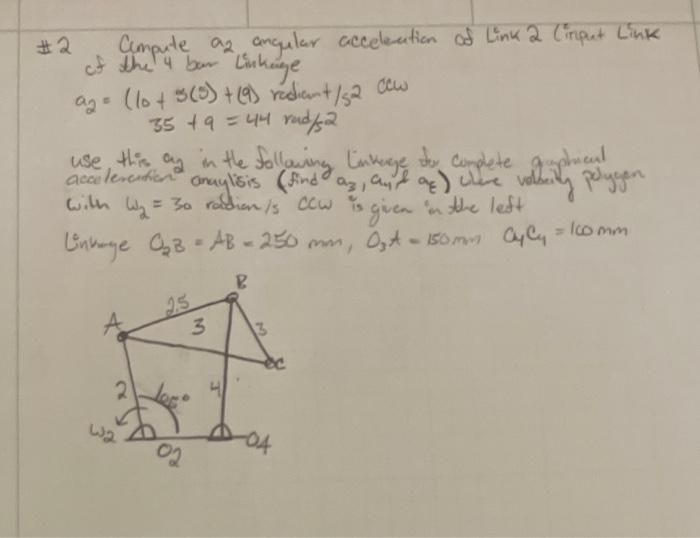 #2 Compute a2 angular acceleration of Link 2 (input Link
of the 4 bar Linkage
a2 = (10 + 5(5) + (9) radiant/s2 CCW
35 + 9 = 44 rad/s2
use this a2 in the following Linkage for complete graphical
acceleration anaylisis (find a3, a4 & ac) where velocity polygon
with ω2 = 30 radian/s CCW is given in the left
Linkage O2B = AB = 250 mm, O2A = 150mm O4C4 = 100mm
B
2.5
A 3 3
C
2 105° 4
ω2
O2 O4